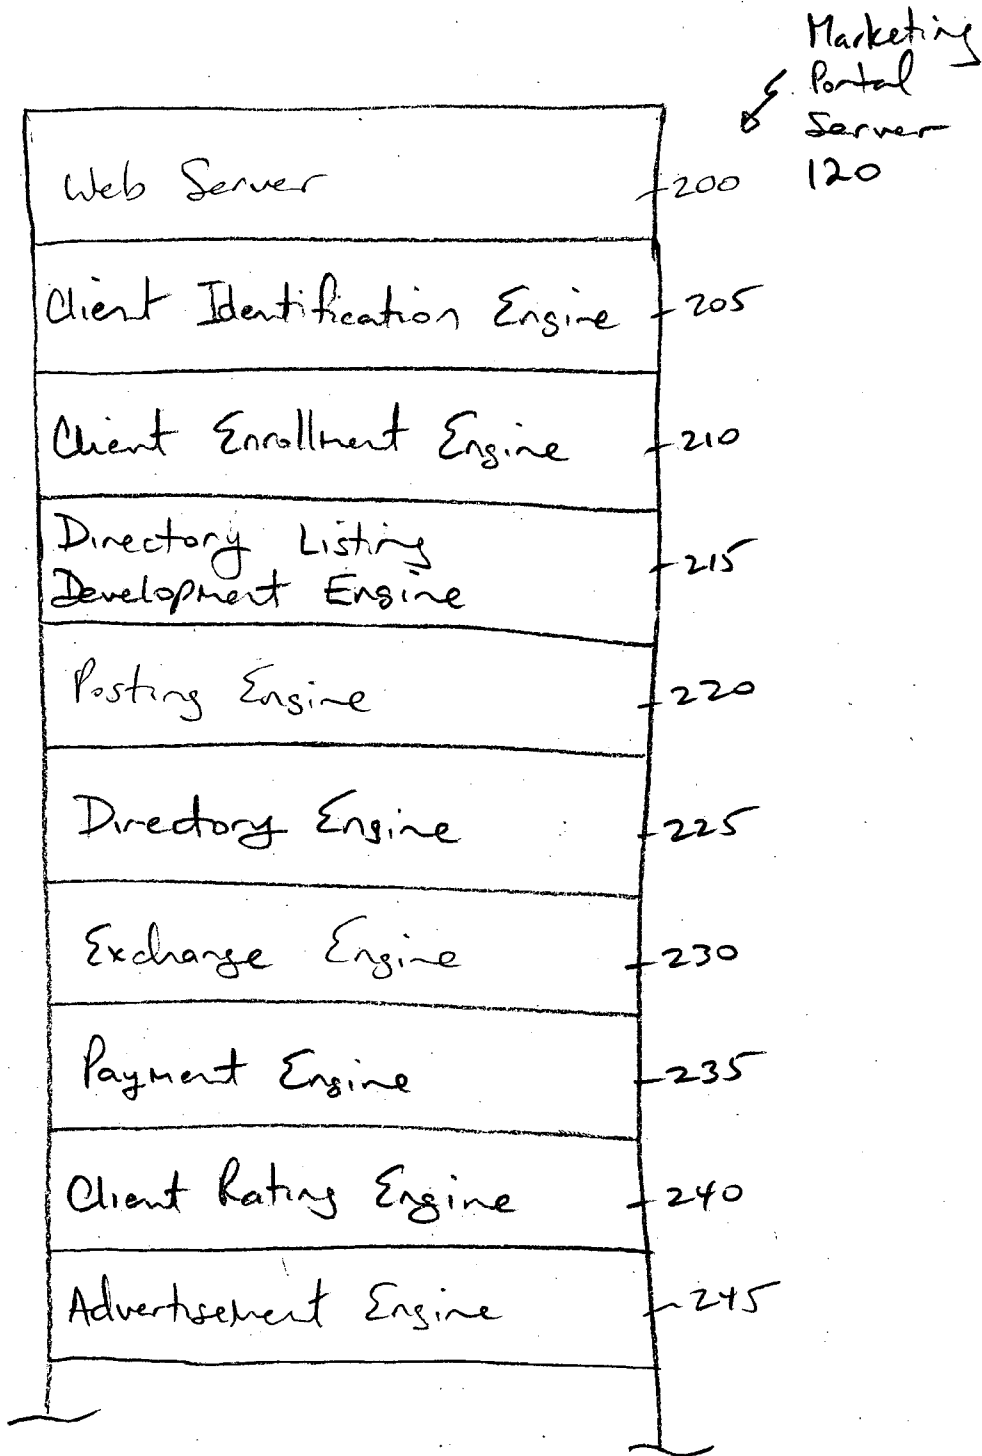 Marketing
Portal
Server
120
Web Server
200
Client Identification Engine
205
Client Enrollment Engine
210
Directory Listing
Development Engine
215
Posting Engine
220
Directory Engine
225
Exchange Engine
230
Payment Engine
235
Client Rating Engine
240
Advertisement Engine
245